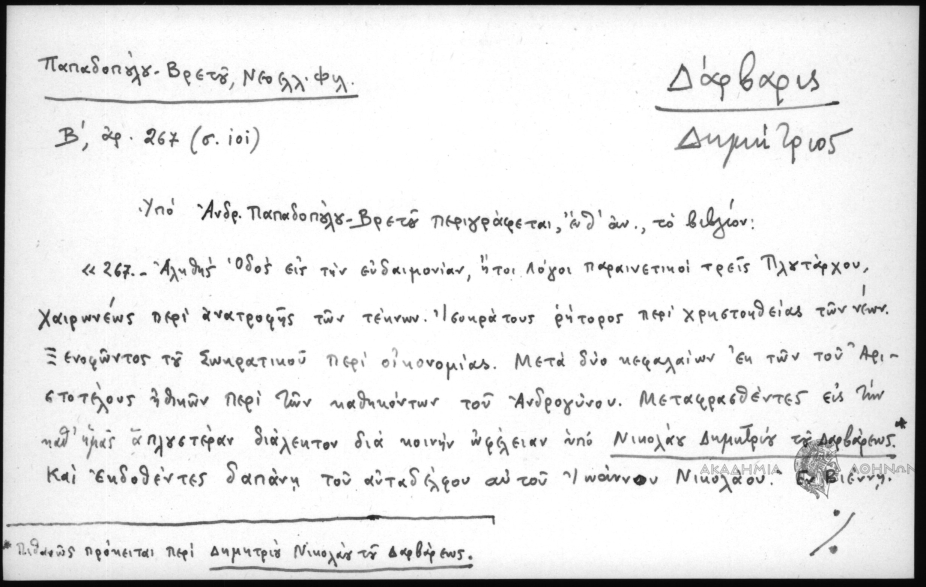 Παπαδοπούλου-Βρετοῦ, Νεοελλ. Φιλ.
Δάρβαρις
Β', ἀρ. 267 (σ. 101)
Δημήτριος
Ὑπό Ἀνδρ. Παπαδοπούλου-Βρετοῦ περιγράφεται, ἔνθ' ἀν., τό βιβλίον:
«267.- Ἀληθής Ὁδός εἰς τήν εὐδαιμονίαν, ἤτοι Λόγοι παραινετικοί τρεῖς Πλουτάρχου,
Χαιρωνέως περί ἀνατροφῆς τῶν τέκνων. Ἰσοκράτους ῥήτορος περί χρηστοηθείας τῶν νέων.
Ξενοφῶντος τοῦ Σωκρατικοῦ περί οἰκονομίας. Μετά δύο κεφαλαίων ἐκ τῶν τοῦ Ἀρι-
στοτέλους ἠθικῶν περί τῶν καθηκόντων τοῦ Ἀνδρογύνου. Μεταφρασθέντες εἰς τήν
καθ' ἡμᾶς ἁπλουστέραν διάλεκτον διά κοινήν ὠφέλειαν ὑπό Νικολάου Δημητρίου τοῦ Δαρβάρεως.*
Καί ἐκδοθέντες δαπάνῃ τοῦ αὐταδέλφου αὐτοῦ Ἰωάννου Νικολάου. Ἐν Βιέννῃ.
ΑΚΑΔΗΜΙΑ ΑΘΗΝΩΝ
./.
* Πιθανῶς πρόκειται περί Δημητρίου Νικολάου τοῦ Δαρβάρεως.